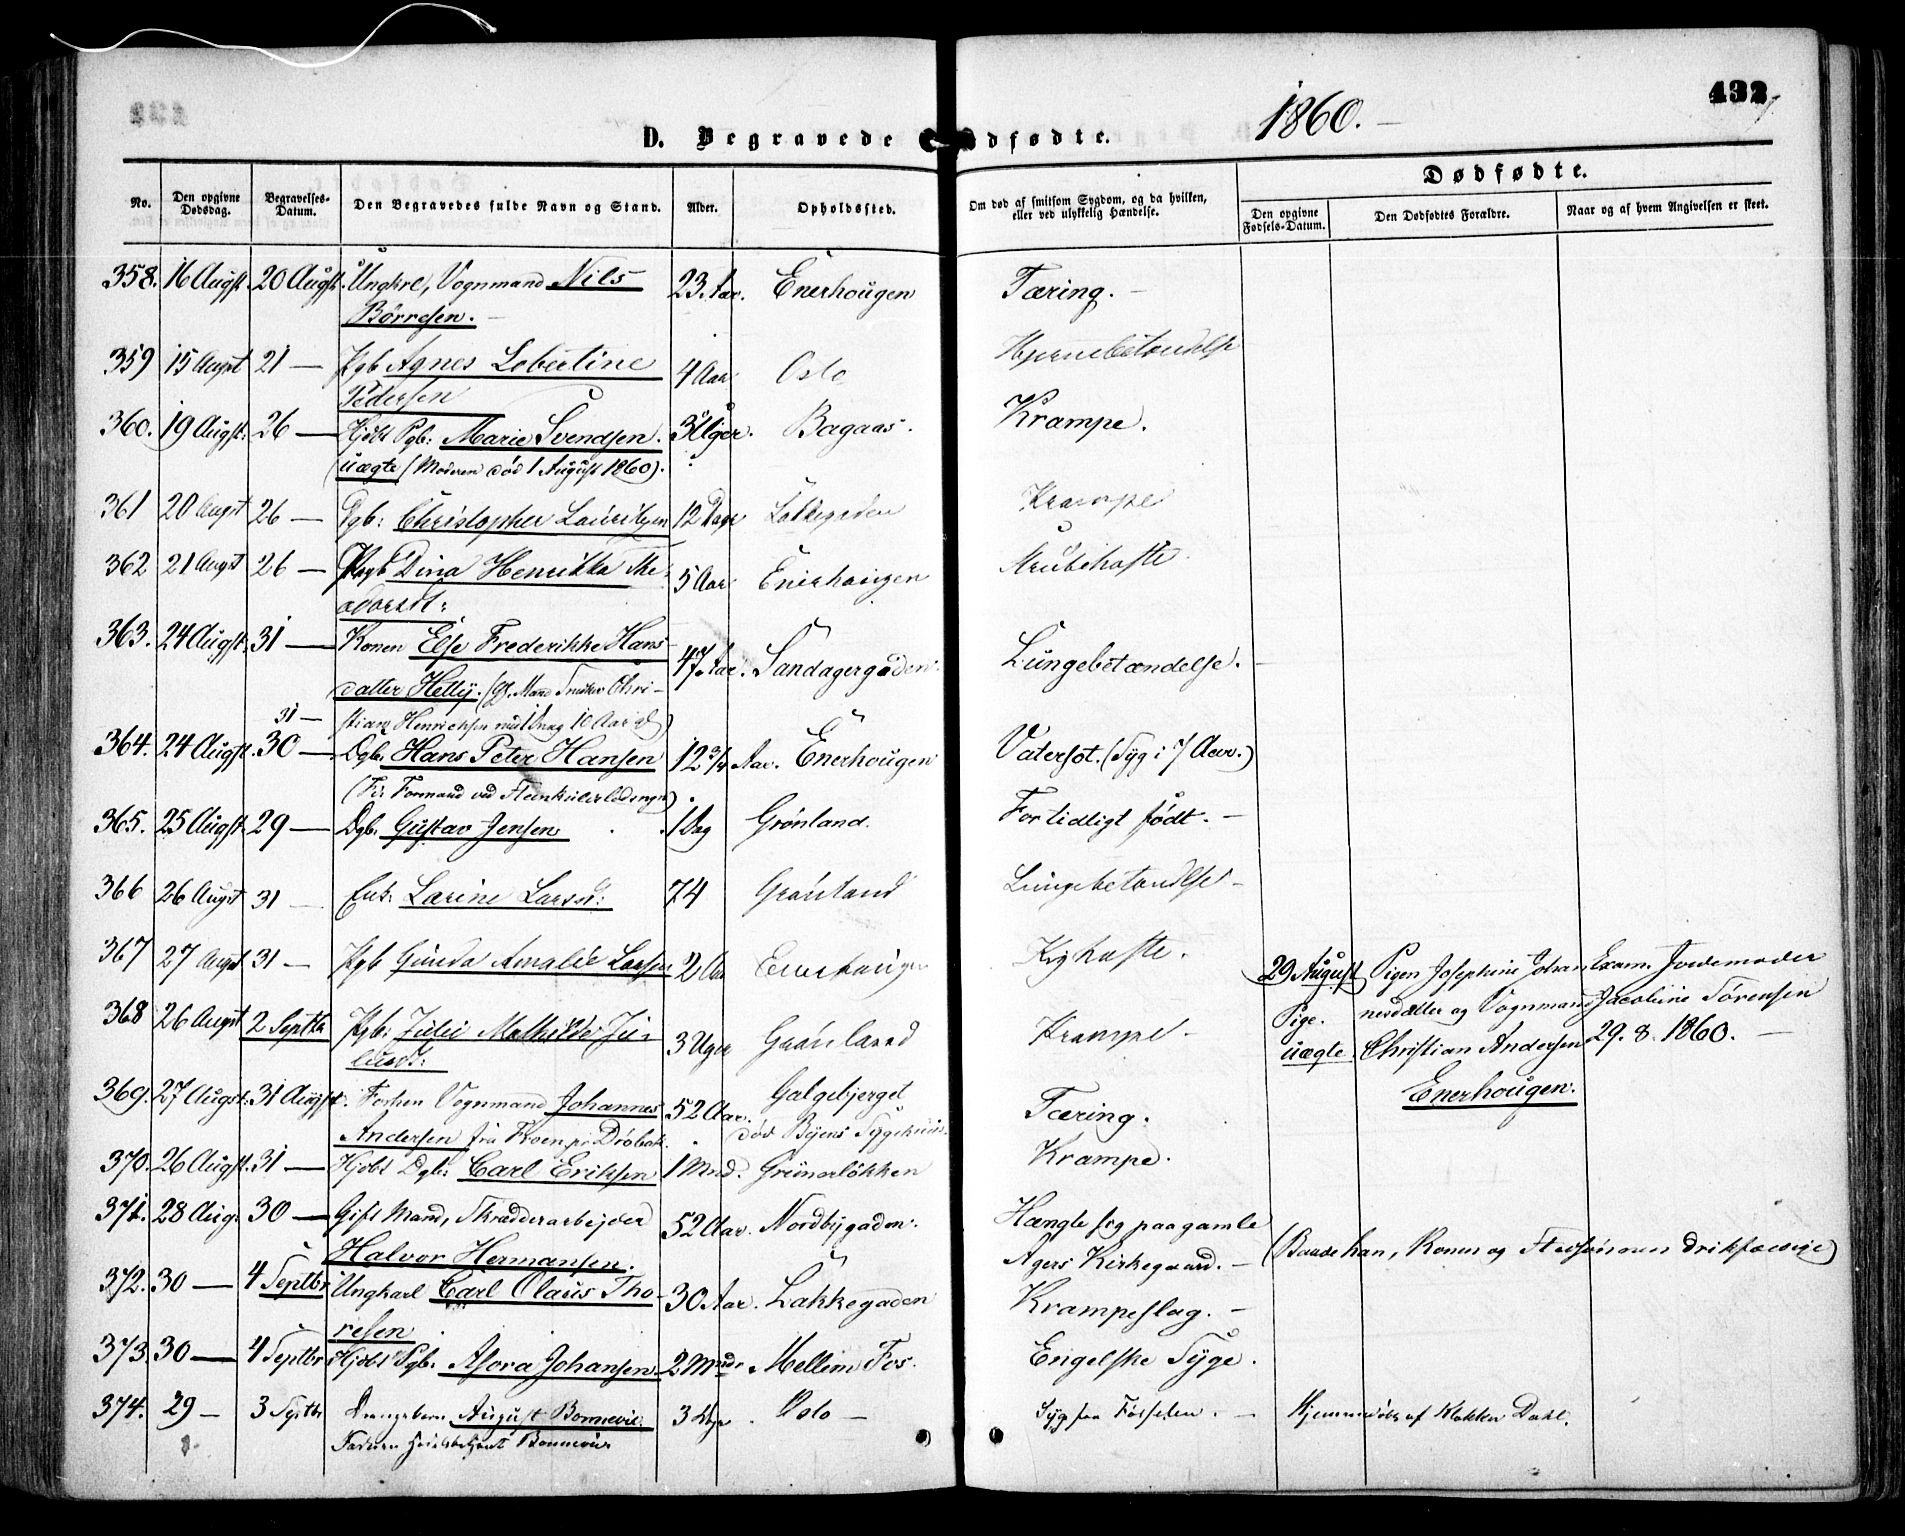 1860.
432
D. Begravede
dfødte.
Dødfødte.
No.
Den opgivne Dødsdag.
Begravelses-Datum.
Den Begravedes fulde Navn og Stand.
Alder.
Opholdssted.
Om død af smitsom Sygdom, og da hvilken, eller ved ulykkelig Hændelse.
Den opgivne Fødsels-Datum.
Den Dødfødtes Forældre.
Naar og af hvem Angivelsen er skeet.
358. 16 Augst. 20 Augst. Ungkrl, Vognmand Nils 23 Aar. Enerhougen Tæring. —
Børresen. —
359 15 Augst 21 — Pgb Agnes Lobertine 4 Aar Oslo Hjernebetændelse
Pedersen
360. 19 Augst. 26 — Hjdbt Pgb: Marie Svendsen. 3 Uger. Bagaas. Krampe.
uægte (Moderen død 1 August 1860).
361 20 Augst 26 — Dgb: Christopher Lauritzen 12 Dage Lakkegaden Krampe
362 21 Augst 26 — Pgb Dina Henrikke The- 5 Aar Enerhaugen Strubehoste
odorsdt:
363. 24 Augst. 31 — Konen Else Frederikke Hans- 47 Aar. Sandagergaden. Lungebetændelse. —
datter Helly. (gl. Mand Snedker Chri-
31 — stian Henrichsen 10 Aar
364. 24 Augst. 30 — Dgb. Hans Peter Hansen 12 3/4 Aar. Enerhougen Vatersot. (Syg i 7 Aar.)
(Fr. Formand ved
365. 25 Augst. 29 — Dgb. Gustav Jensen 1 Dag Grønland. For tidligt født. —
366 26 Augst 31 — Enk: Larine Larsd: 74 Grønland Lungebetændelse —
367 27 Augst 31 — Pgb Gunda Amalie Larsen 2 Aar Enerhaugen Kighoste. 29 August Pigen Josephine Johan- Exam. Jordemoder
368 26 Augst 2 Septbr Pgb: Julie Mathilde Ju- 3 Uger Grønland Krampe — Pige. nesdatter og Vognmand Jacobine Sørensen
uægte. Christian Andersen 29. 8. 1860. —
369. 27 Augst. 31 Augst. Forhen Vognmand Johannes 52 Aar. Galgebjerget Tæring. Enerhougen.
Andersen fra Drøbak død Byens Sygehuus
370. 26 Augst. 31 — Hjdbt Dgb: Carl Eriksen 1 Mnd. Grünerløkken Krampe.
371. 28 Aug. 30 — Gift Mand, Skrædderarbejder 52 Aar. Nordbygaden. Hængte sig paa gamle
Halvor Hermansen. Agers Kirkegaard. — (Baade han, Konen og drikfældige)
372. 30 — 4 Septbr Ungkarl Carl Olaus Tho- 30 Aar. Lakkegaden Krampeslag. —
resen
373. 30 — 4 Septbr Hjdbt Pgb. Asora Johansen 2 Mndr Mellem Fos. Engelske Syge.
374. 29 — 3 Septbr Drengebarn August Bonnevie. 3 Dage Oslo — Syg fra Fødselen. — Hjemmedøbt af Klokker Dahl.
Faderen Bonnevie